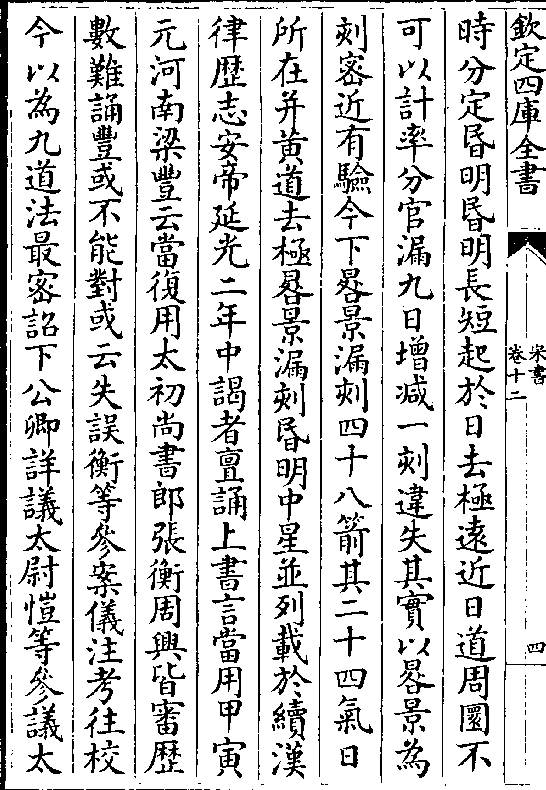 欽定四庫全書
宋書
卷十二
四
時分定昏明昏明長短起於日去極遠近日道周圜不
可以計率分官漏九日增減一刻違失其實以晷景為
刻宻近有驗今下晷景漏刻四十八箭其二十四氣日
所在并黃道去極晷景漏刻昏明中星並列載於續漢
律歴志安帝延光二年中謁者亶誦上書言當用甲寅
元河南梁豐云當復用太初尚書郎張衡周興皆審歴
數難誦豐或不能對或云失誤衡等參案儀注考往校
今以為九道法最宻詔下公卿詳議太尉愷等參議太